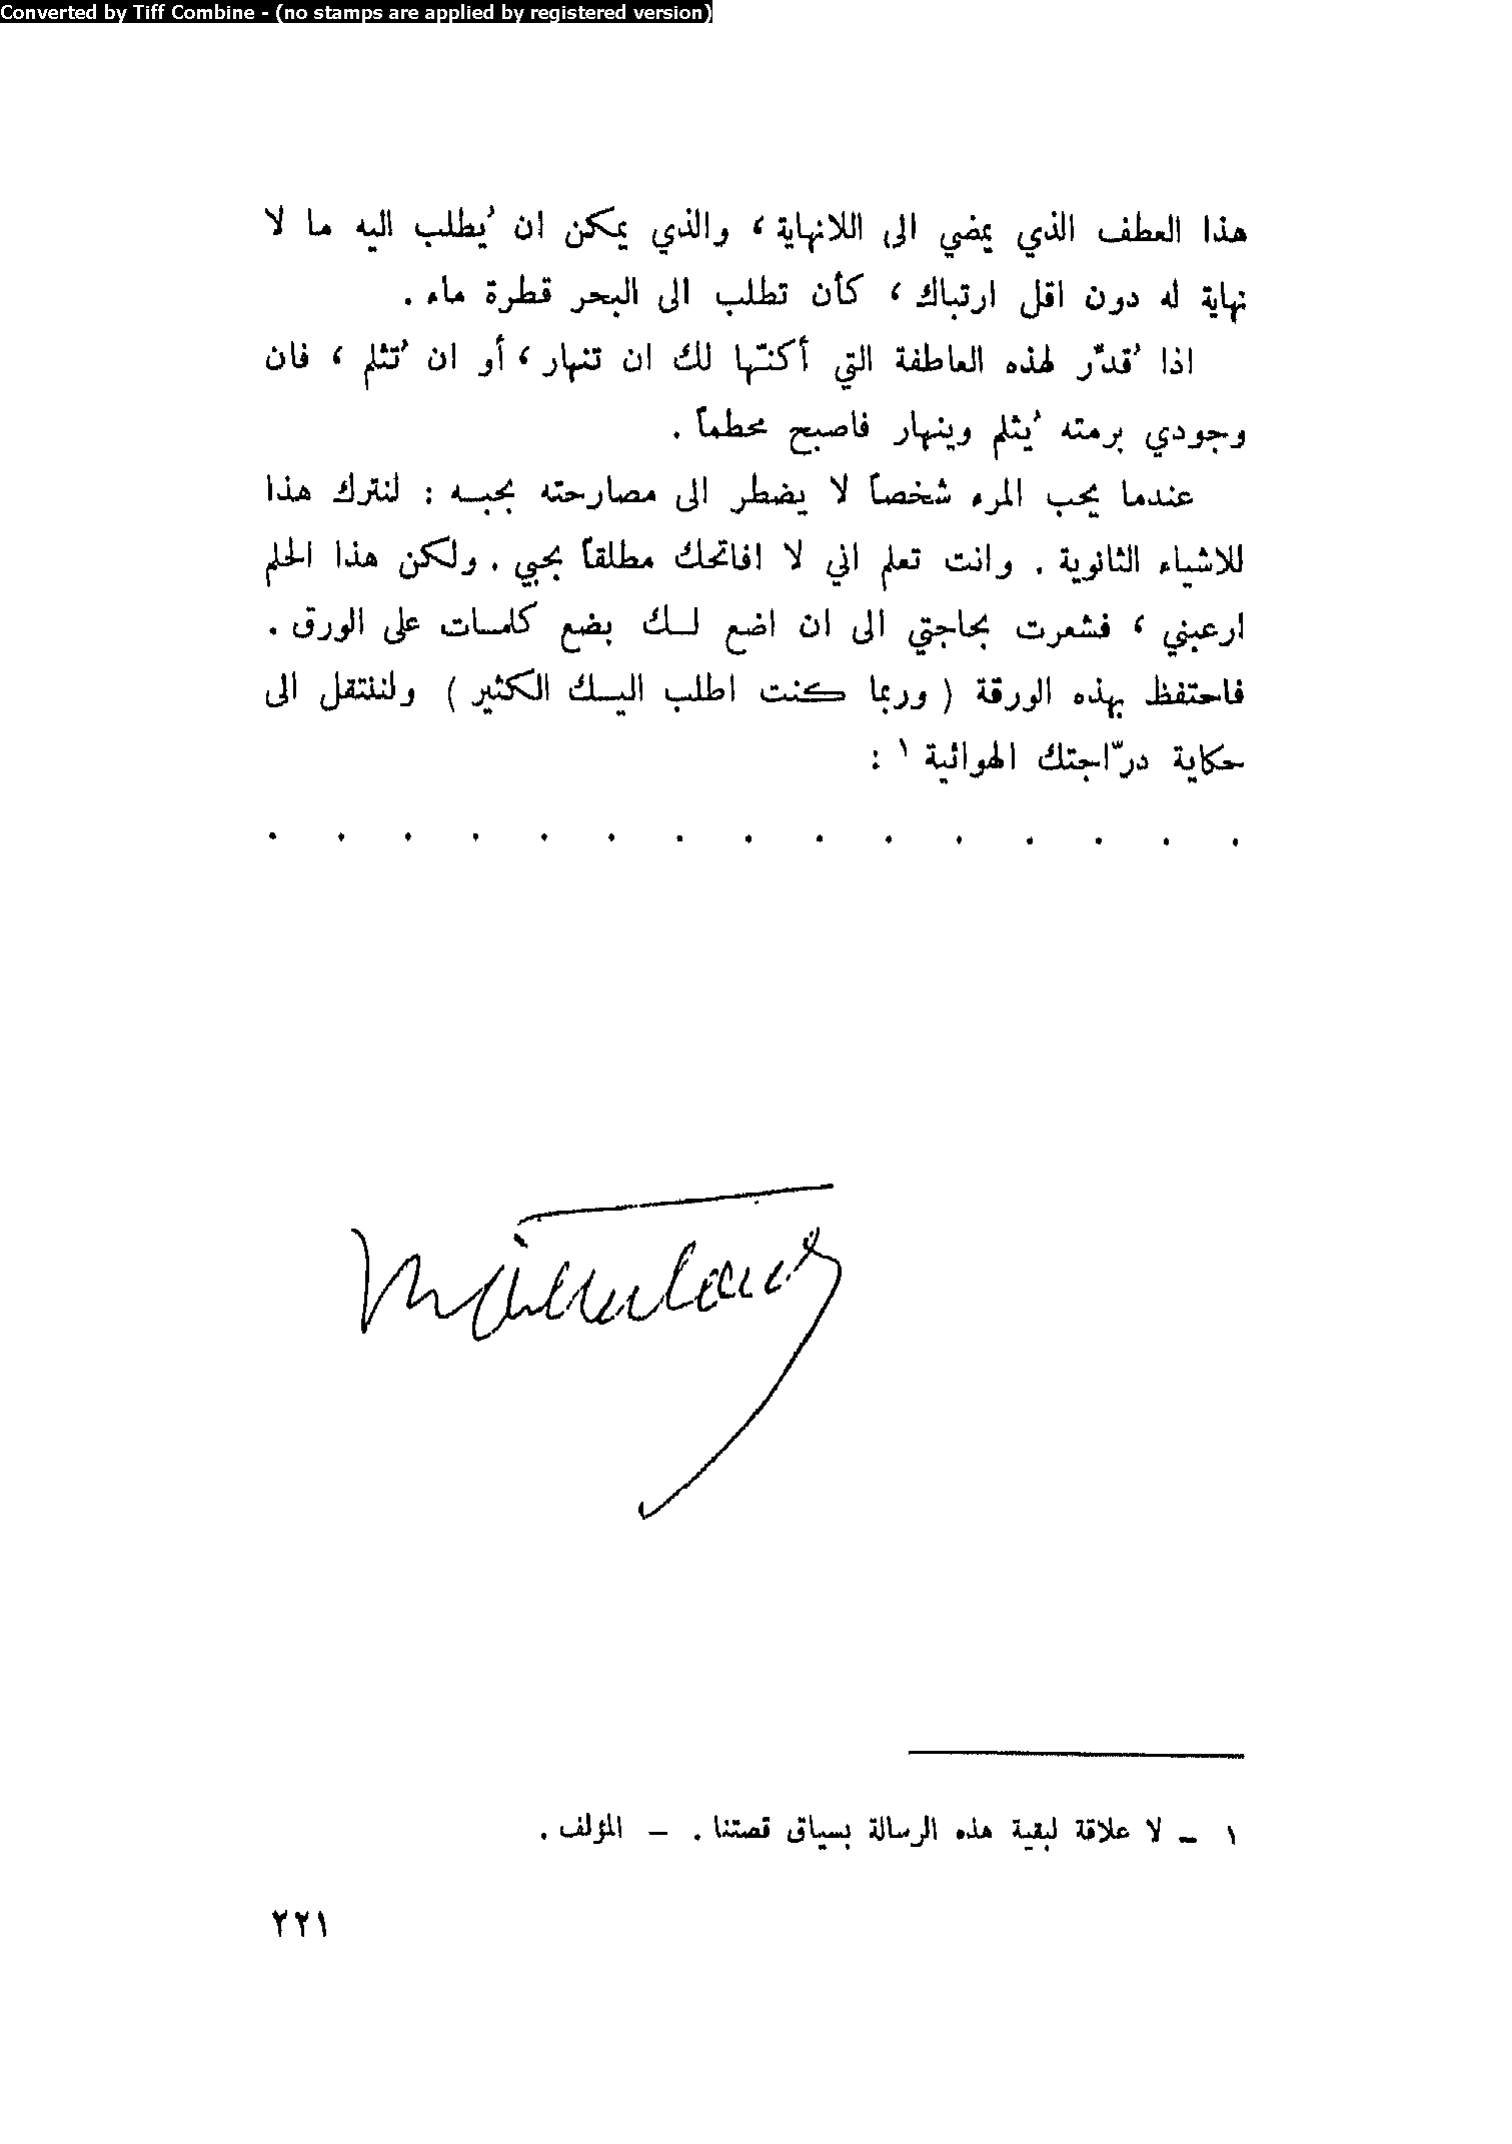 Converted by Tiff Combine - (no stamps are applied by registered version)
هذا العطف الذي يمضي الى اللانهاية ، والذي يمكن ان يُطلب اليه ما لا
نهاية له دون اقل ارتباك ، كأن تطلب الى البحر قطرة ماء .
اذا قُدّر لهذه العاطفة التي أكنّها لك ان تنهار ، أو ان تُثلم ، فان
وجودي برمته يُثلم وينهار فاصبح محطماً .
عندما يحب المرء شخصاً لا يضطر الى مصارحته بحبه : لنترك هذا
للاشياء الثانوية . وانت تعلم اني لا افاتحك مطلقاً بحبي . ولكن هذا الحلم
ارعبني ، فشعرت بحاجتي الى ان اضع لك بضع كلمات على الورق .
فاحتفظ بهذه الورقة ( وربما كنت اطلب اليك الكثير ) ولننتقل الى
حكاية درّاجتك الهوائية ١ :
. . . . . . . . . . . . . . .
١ – لا علاقة لبقية هذه الرسالة بسياق قصتنا . – المؤلف .
٢٢١